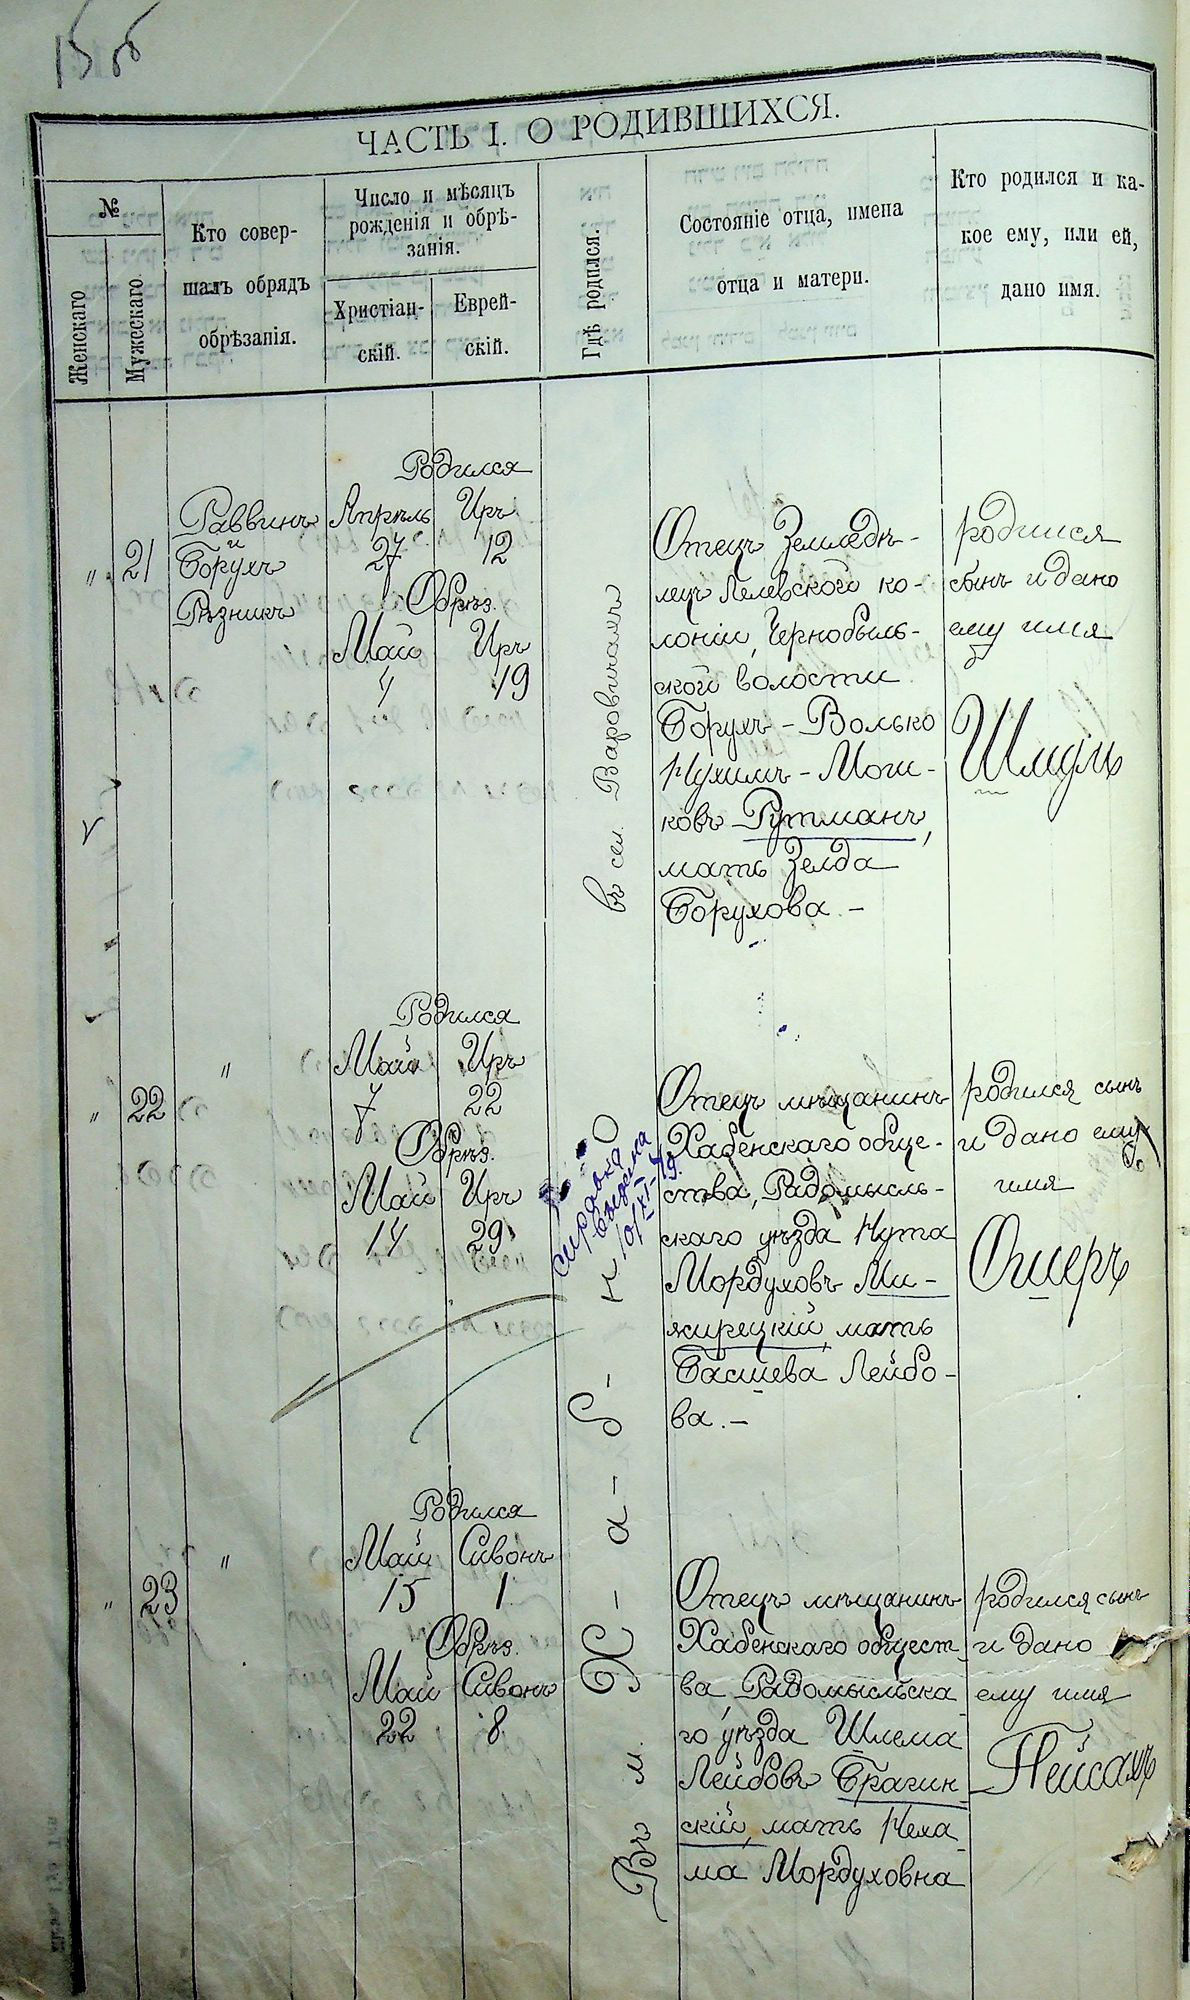 15 об
ЧАСТЬ I. О РОДИВШИХСЯ.
№
Женскаго
Мужескаго
Кто совер-
шалъ обрядъ
обрѣзанія.
Число и мѣсяцъ
рожденія и обрѣ-
занія.
Христіан-
скій.
Еврей-
скій.
Гдѣ родился.
Состояніе отца, имена
отца и матери.
Кто родился и ка-
кое ему, или ей,
дано имя.
"
21
Раввинъ
и
Борухъ
Рѣзникъ
Родился
Апрѣль Иръ
27 12
Обрѣз.
Май Иръ
4 19
въ сел. Варовичахъ
Отецъ Земледѣ-
лецъ Лелевскаго ко-
лоніи, Чернобыль-
ской волости
Борухъ-Волько
Нухимъ-Мош-
ковъ Рутманъ,
мать Зелда
Борухова.-
родился
сынъ и дано
ему имя
Шмуль
"
22
"
Родился
Май Иръ
7 22
Обрѣз.
Май Иръ
14 29
справка
выдана
10/XI-19.
Отецъ мѣщанинъ
Хабенскаго обще-
ства, Радомысль-
скаго уѣзда Нута
Мордуховъ Ми-
жирецкій, мать
Басшева Лейбо-
ва.-
родился сынъ
и дано ему
имя
Ошеръ
"
23
"
Родился
Май Сивонъ
15 1
Обрѣз.
Май Сивонъ
22 8
Въ м. Х-а-б-н-о
Отецъ мѣщанинъ
Хабенскаго общест
ва, Радомысльска
го уѣзда Шлема
Лейбовъ Брагин
скій, мать Неха
ма Мордуховна
родился сынъ
и дано
ему имя
Пейсахъ